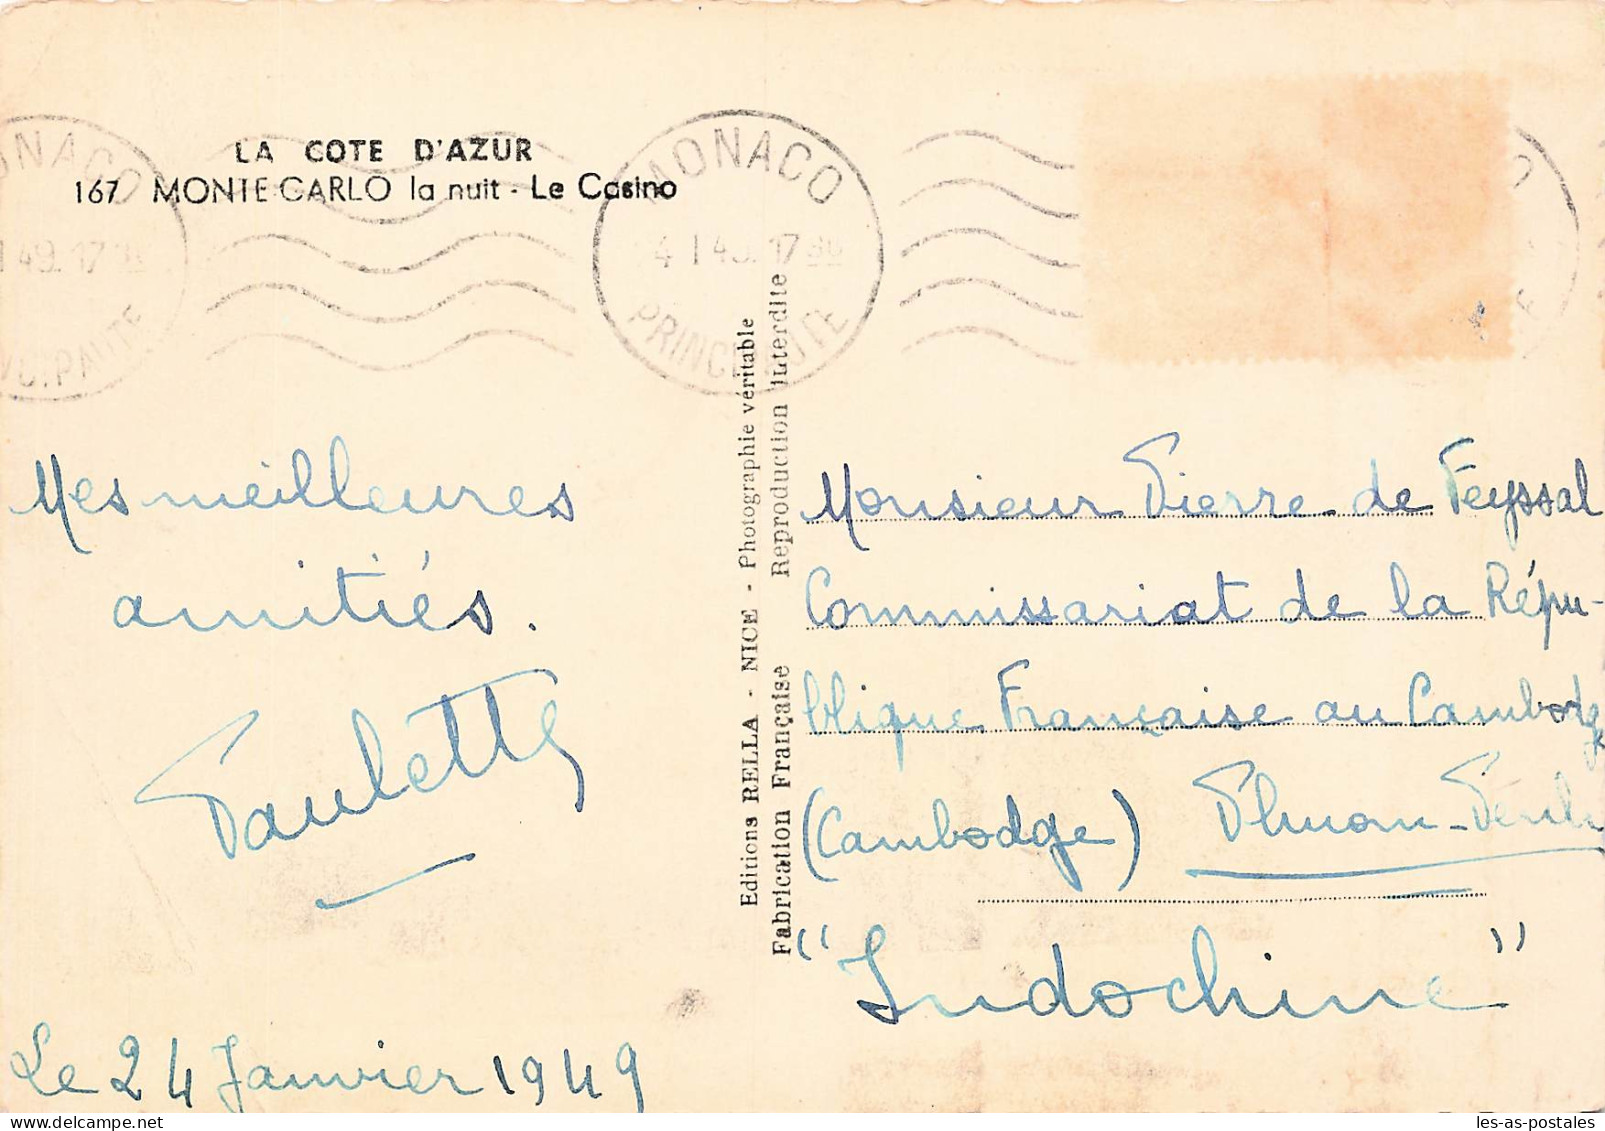 LA COTE D'AZUR
167 MONTE-CARLO la nuit - Le Casino
MONACO
4 - 1 49. 17 30
PRINCIPAUTE
MONACO
1 49. 17 30
PRINC. PAUTE
Editions RELLA - NICE - Photographie véritable
Fabrication Française Reproduction interdite
Mes meilleures
amitiés.
Paulette
Le 24 Janvier 1949
Monsieur Pierre de Feyssal
Commissariat de la Répu-
blique Française au Cambodge
(Cambodge) Phnom-Penh
"Indochine"
les-as-postales